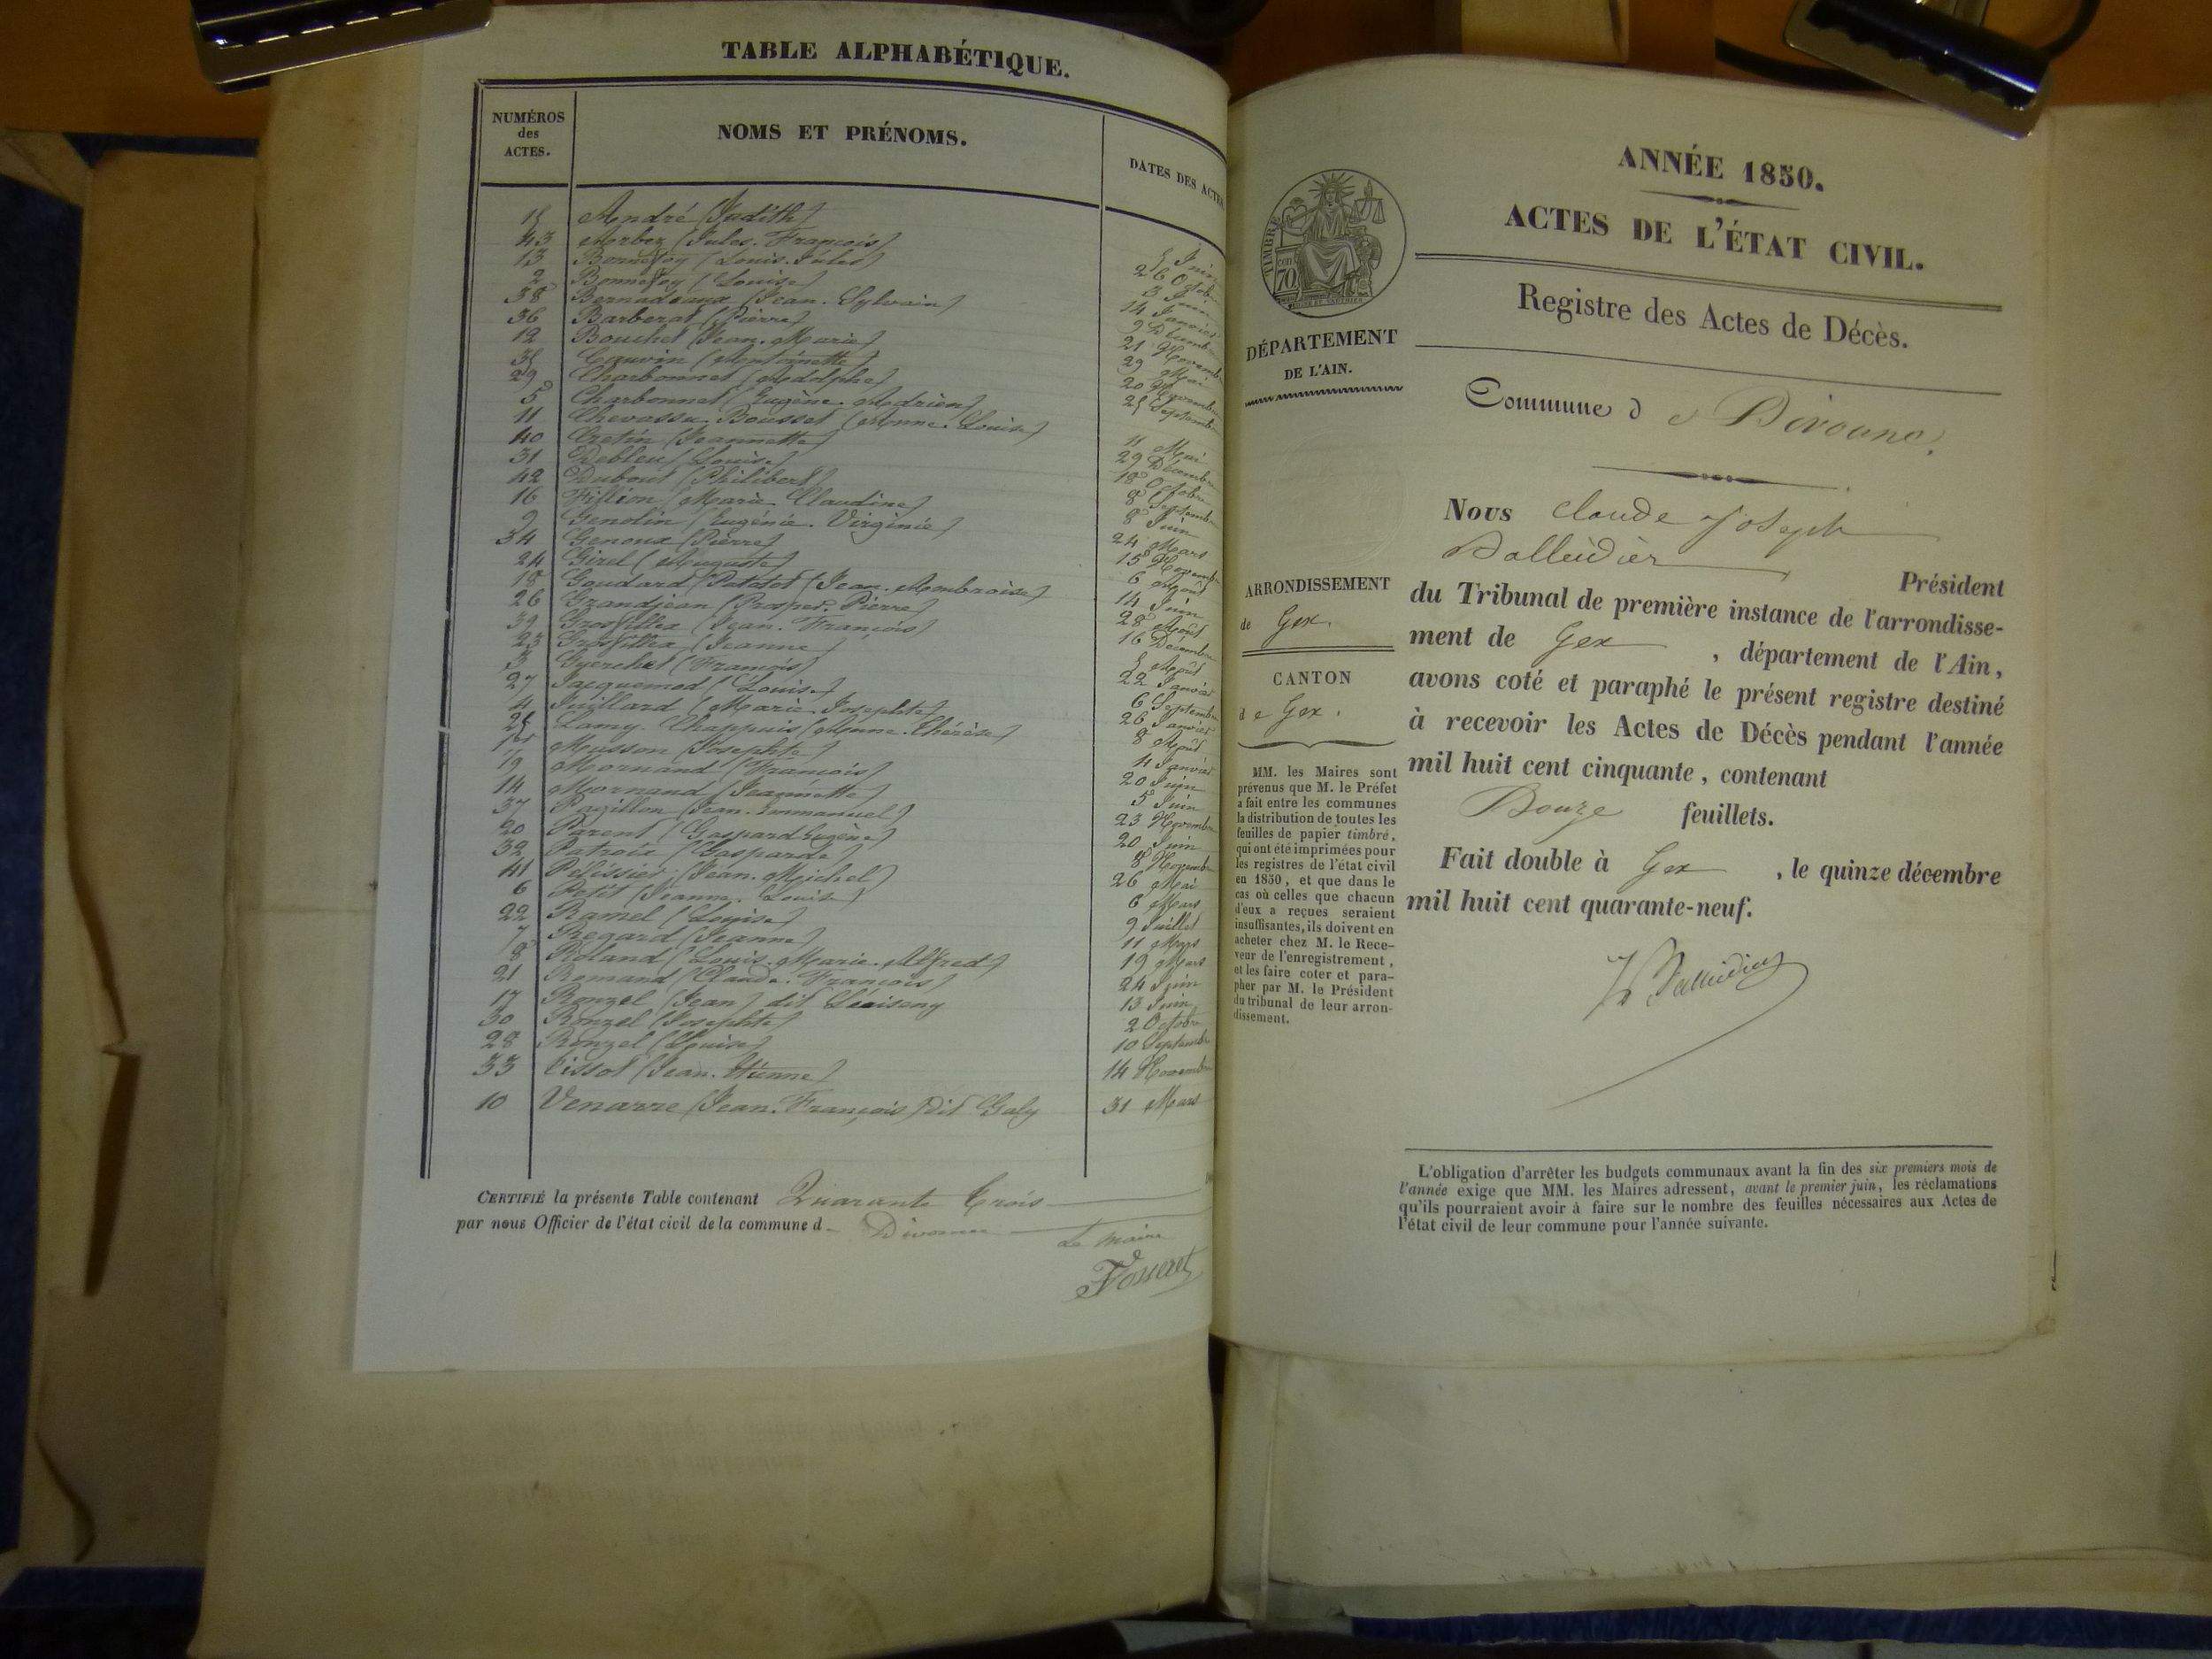 TABLE ALPHABÉTIQUE.
NUMÉROS des ACTES.
NOMS ET PRÉNOMS.
DATES DES ACTES
15 André (Judith) 5 Juin
43 Arbez (Jules. François) 26 Octobre
13 Bonnefoy (Louis. Jules) 3 Juin
2 Bonnefoy (Louise) 14 Janvier
38 Bernadeaux (Jean. Sylvain) 9 Décembre
36 Barberat (Pierre) 21 Novembre
12 Bouchet (Jean. Marie) 29 Mai
35 Cauvin (Antoinette) 20 Novembre
29 Charbonnet (Adolphe) 25 Septembre
5 Charbonnet (Eugène. Adrien)
11 Chevassu. Bousset (Anne. Louise) 11 Mai
40 Cretin (Jeannette) 29 Décembre
31 Debleu (Louise) 18 Octobre
42 Dubout (Philibert) 8 Septembre
16 Fillion (Marie Claudine) 8 Juin
9 Genolin (Eugénie. Virginie) 24 Mars
34 Genoux (Pierre) 15 Novembre
24 Girel (Auguste) 6 Août
18 Goudard (Patatot (Jean. Ambroise) 14 Juin
26 Grandjean (Prosper. Pierre) 28 Août
39 Grosfillex (Jean. François) 16 Décembre
23 Grosfillex (Jeanne) 5 Août
3 Guerchet (François) 22 Janvier
27 Jacquemod (Louise) 6 Septembre
4 Juillard (Marie Josephte) 26 Janvier
25 Lamy. Chappuis (Anne. Thérèse) 8 Août
1er Musson (Josephte) 4 Janvier
19 Mornand (François) 20 Juin
14 Mornand (Jeannette) 5 Juin
37 Pagillon (Jean. Emmanuel) 23 Novembre
20 Parent (Gaspard Eugène) 20 Juin
32 Patroix (Gasparde) 8 Novembre
41 Pélissier (Jean. Michel) 26 Mai
6 Petit (Jeanne. Louise) 6 Mars
22 Ramel (Louise) 9 Juillet
7 Regard (Jeanne) 11 Mars
8 Roland (Louis. Marie. Alfred) 19 Mars
21 Romand (Claude. François) 24 Juin
17 Ronzel (Jean) dit 13 Juin
30 Ronzel (Josephte) 2 Octobre
28 Ronzel (Louise) 10 Septembre
33 Tissot (Jean. Etienne) 14 Novembre
10 Venarre (Jean. François) Dit Galy 31 Mars
CERTIFIÉ la présente Table contenant Quarante trois
par nous Officier de l'état civil de la commune d Divonne
Le maire
Vosseret
TIMBRE
70
DÉPARTEMENT
DE L'AIN.
ARRONDISSEMENT
de Gex.
CANTON
de Gex.
MM. les Maires sont
prévenus que M. le Préfet
a fait entre les communes
la distribution de toutes les
feuilles de papier timbré,
qui ont été imprimées pour
les registres de l'état civil
en 1850, et que dans le
cas où celles que chacun
d'eux a reçues seraient
insuffisantes, ils doivent en
acheter chez M. le Rece-
veur de l'enregistrement,
et les faire coter et para-
pher par M. le Président
du tribunal de leur arron-
dissement.
ANNÉE 1850.
ACTES DE L'ÉTAT CIVIL.
Registre des Actes de Décès.
Commune d e Divonne.
Nous Claude Joseph
Balleidier Président
du Tribunal de première instance de l'arrondisse-
ment de Gex, département de l'Ain,
avons coté et paraphé le présent registre destiné
à recevoir les Actes de Décès pendant l'année
mil huit cent cinquante, contenant
Douze feuillets.
Fait double à Gex, le quinze décembre
mil huit cent quarante-neuf.
Balleidier
L'obligation d'arrêter les budgets communaux avant la fin des six premiers mois de
l'année exige que MM. les Maires adressent, avant le premier juin, les réclamations
qu'ils pourraient avoir à faire sur le nombre des feuilles nécessaires aux Actes de
l'état civil de leur commune pour l'année suivante.